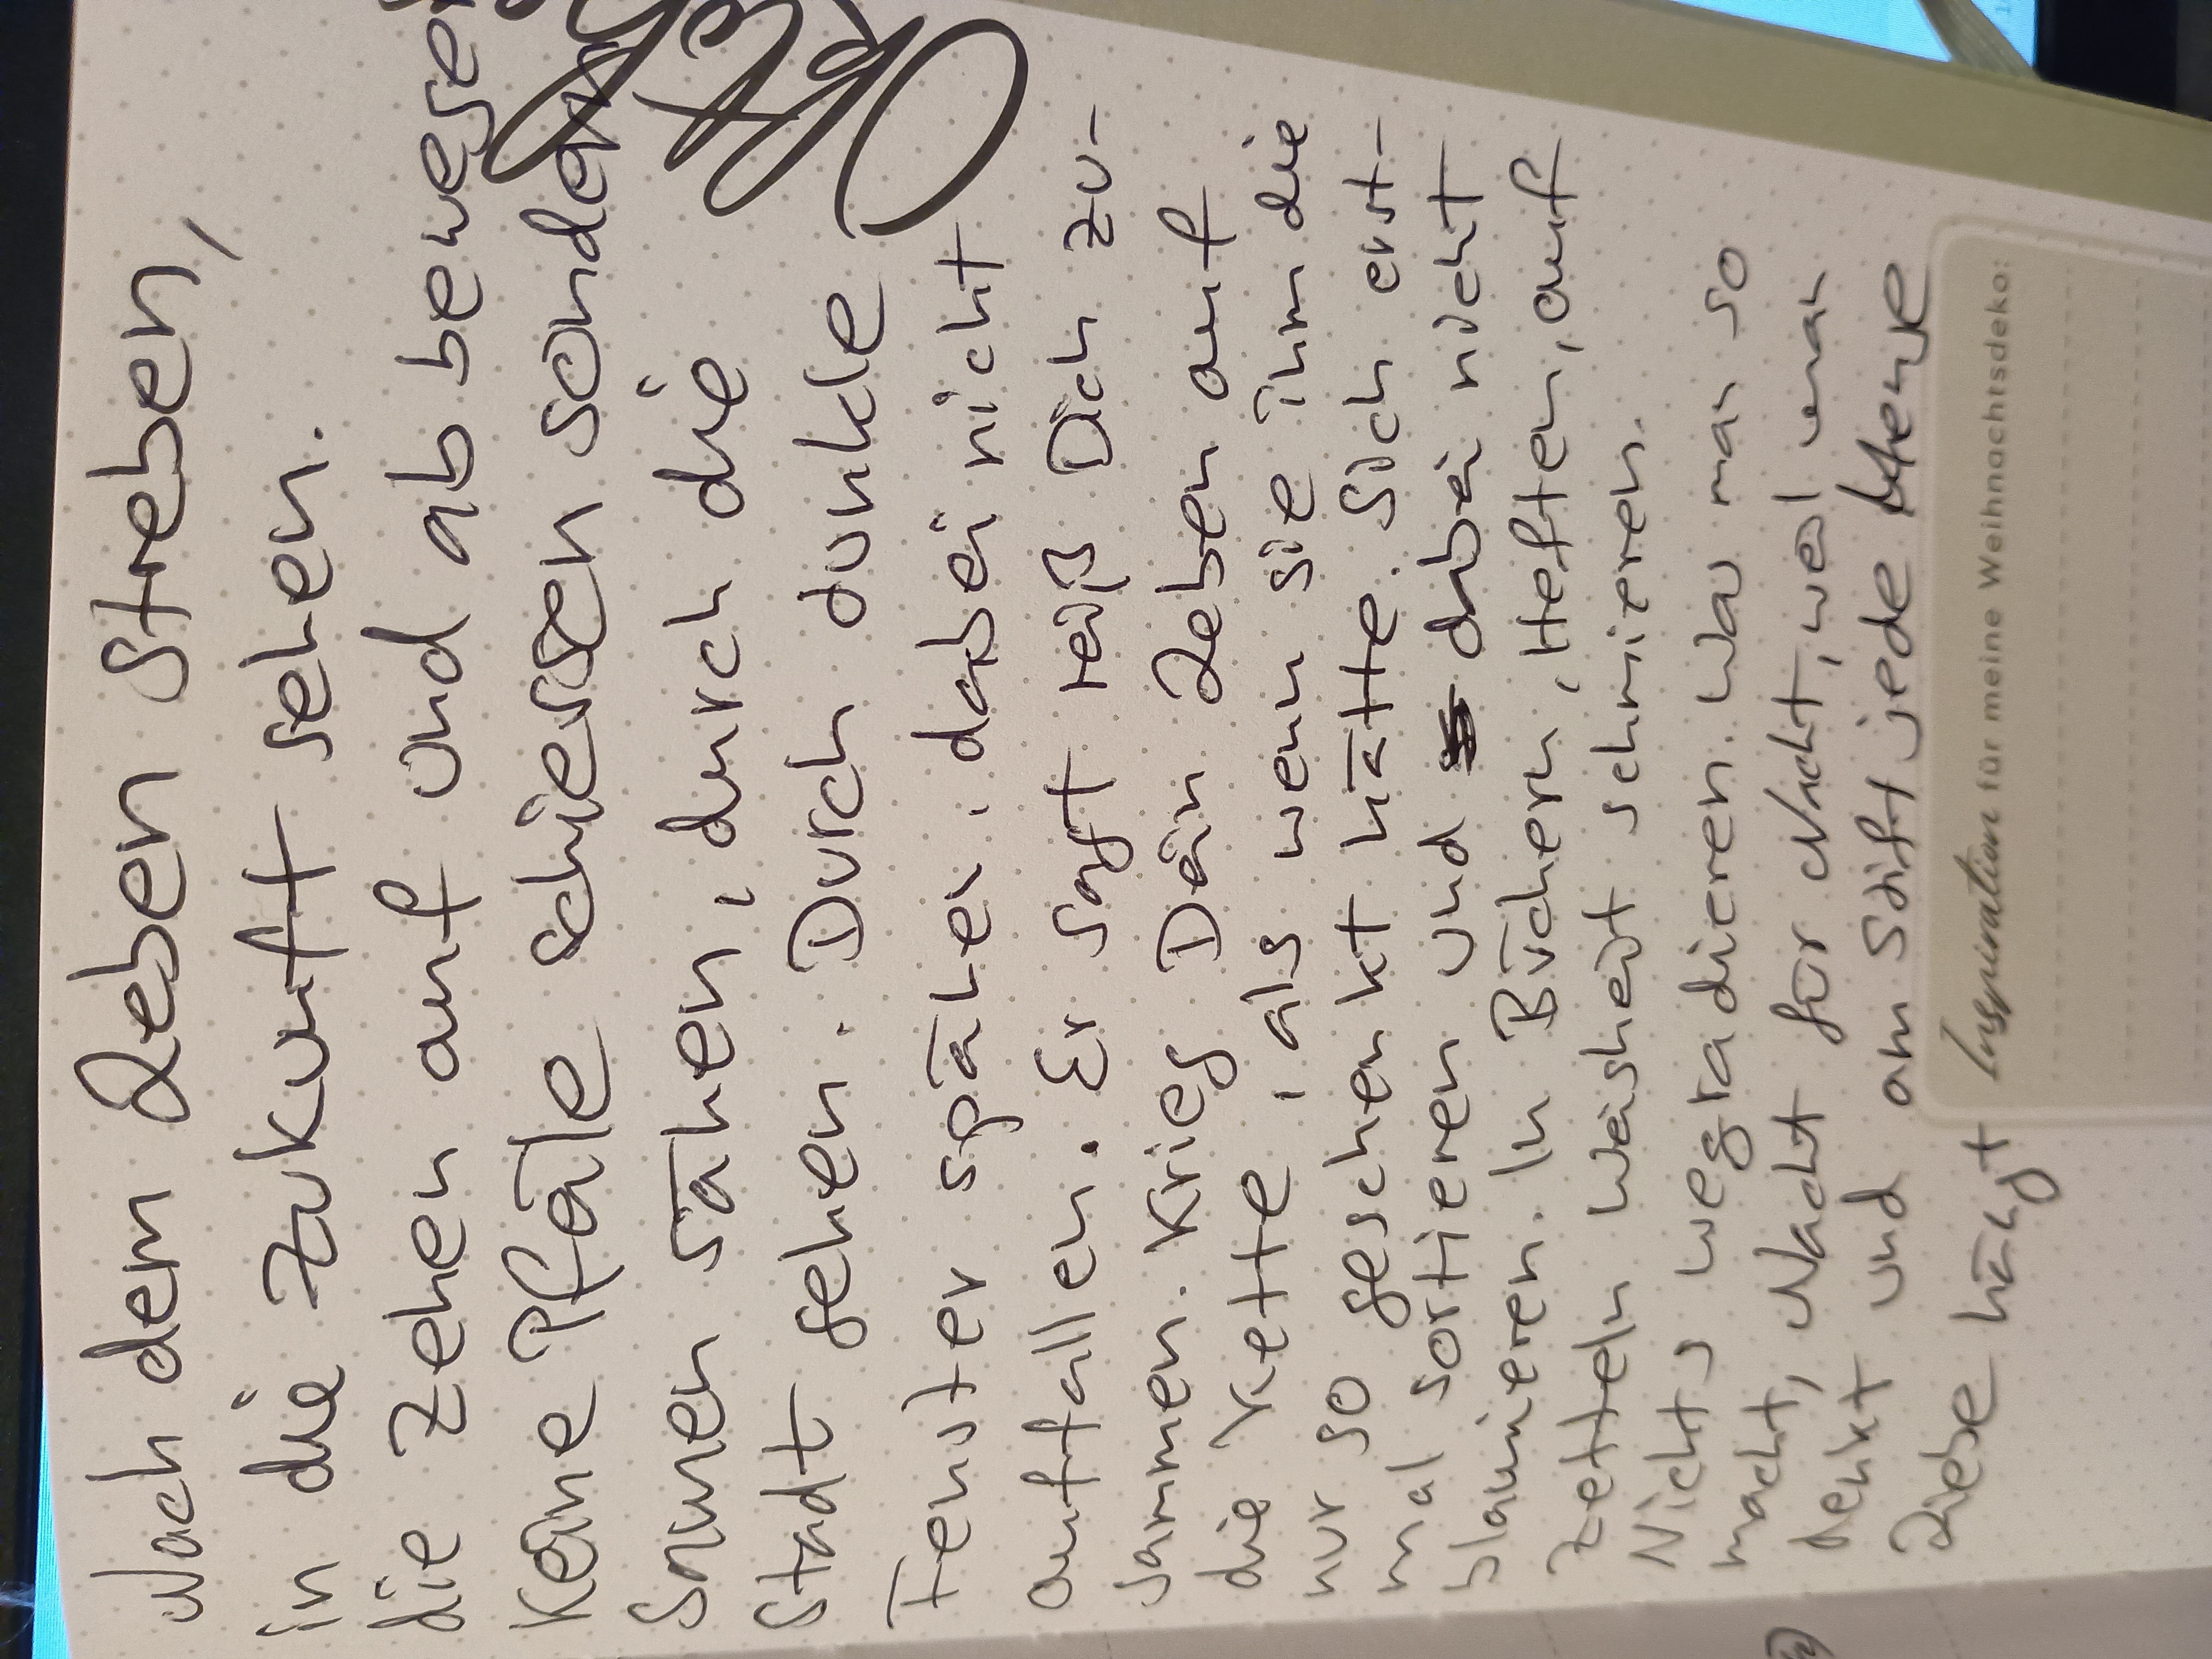 Nach dem Leben streben,
in die Zukunft sehen.
die Zehen auf und ab bewegen
Keine Pfäle schiessen sondern
Samen sähen, durch die
Stadt gehen. Durch dunkle
Fenster spähen, dabei nicht
auffallen. Er sagt reiß Dich zu-
sammen. Krieg Dein Leben auf
die Kette, als wenn sie ihm die
nur so geschenkt hätte. Sich erst-
mal sortieren und dabei nicht
blamieren. In Büchern, Heften, auf
Zetteln Weisheit schmieren.
Nichts wegradieren. Was man so
macht, Nacht für Nacht, weil man
denkt und am Stift jede Menge
Liebe hängt
Inspiration für meine Weihnachtsdeko: